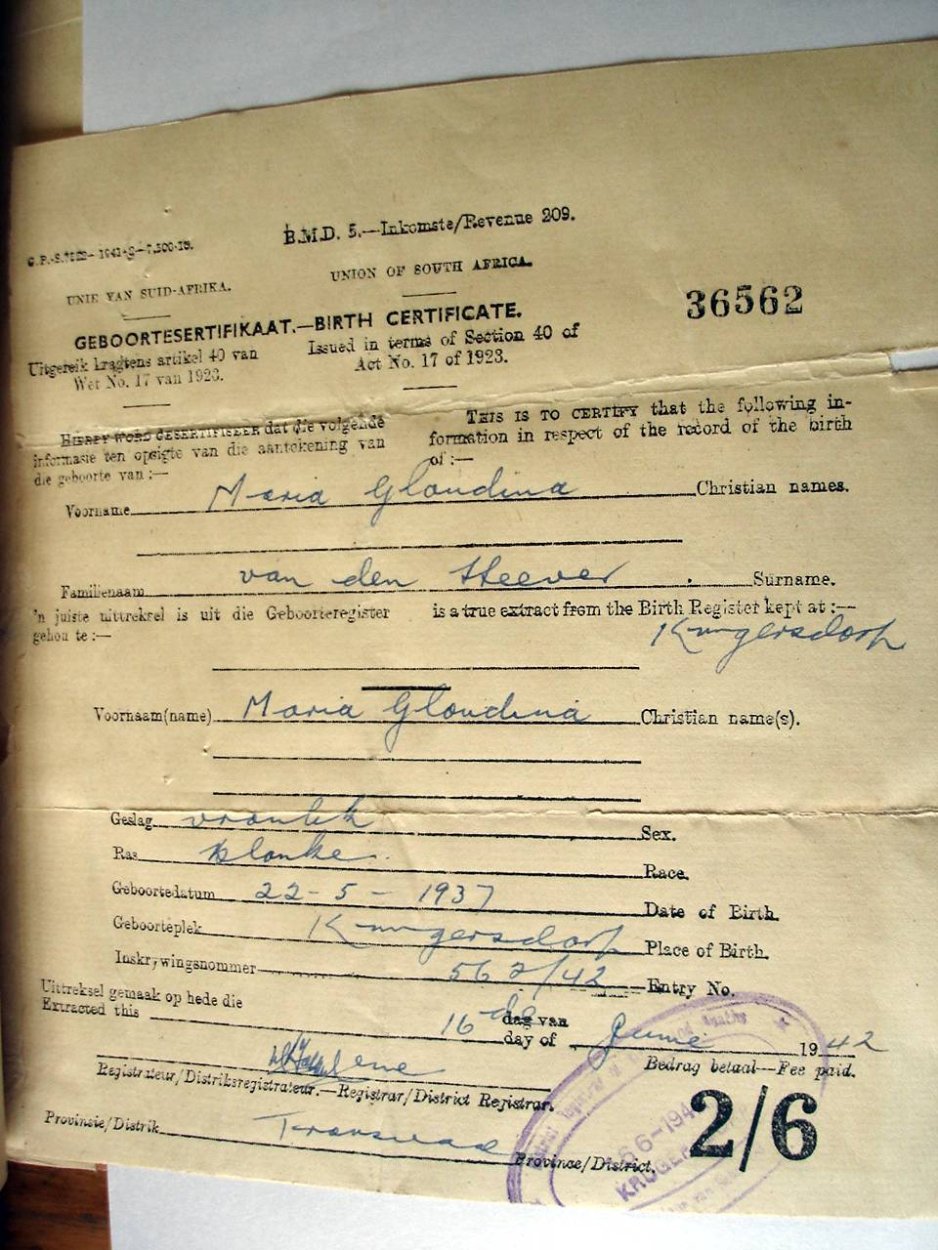 B.M.D. 5.—Inkomste/Revenue 209.
UNIE VAN SUID-AFRIKA.
UNION OF SOUTH AFRICA.
36562
GEBOORTESERTIFIKAAT.—BIRTH CERTIFICATE.
Uitgereik kragtens artikel 40 van
Wet No. 17 van 1923.
Issued in terms of Section 40 of
Act No. 17 of 1923.
HIERBY WORD GESERTIFISEER dat die volgende
informasie ten opsigte van die aantekening van
die geboorte van :—
THIS IS TO CERTIFY that the following in-
formation in respect of the record of the birth
of :—
Voorname Maria Gloudina Christian names.
Familienaam van den Heever Surname.
'n juiste uittreksel is uit die Geboorteregister
gehou te :—
is a true extract from the Birth Register kept at :—
Krugersdorp
Voornaam(name) Maria Gloudina Christian name(s).
Geslag vroulik Sex.
Ras blanke. Race.
Geboortedatum 22-5-1937 Date of Birth.
Geboorteplek Krugersdorp Place of Birth.
Inskrywingsnommer 562/42 Entry No.
Uittreksel gemaak op hede die 16 de dag van
Extracted this day of Junie 1942
Bedrag betaal—Fee paid.
Registrateur/Distriksregistrateur.—Registrar/District Registrar.
2/6
Provinsie/Distrik Transvaal Province/District.